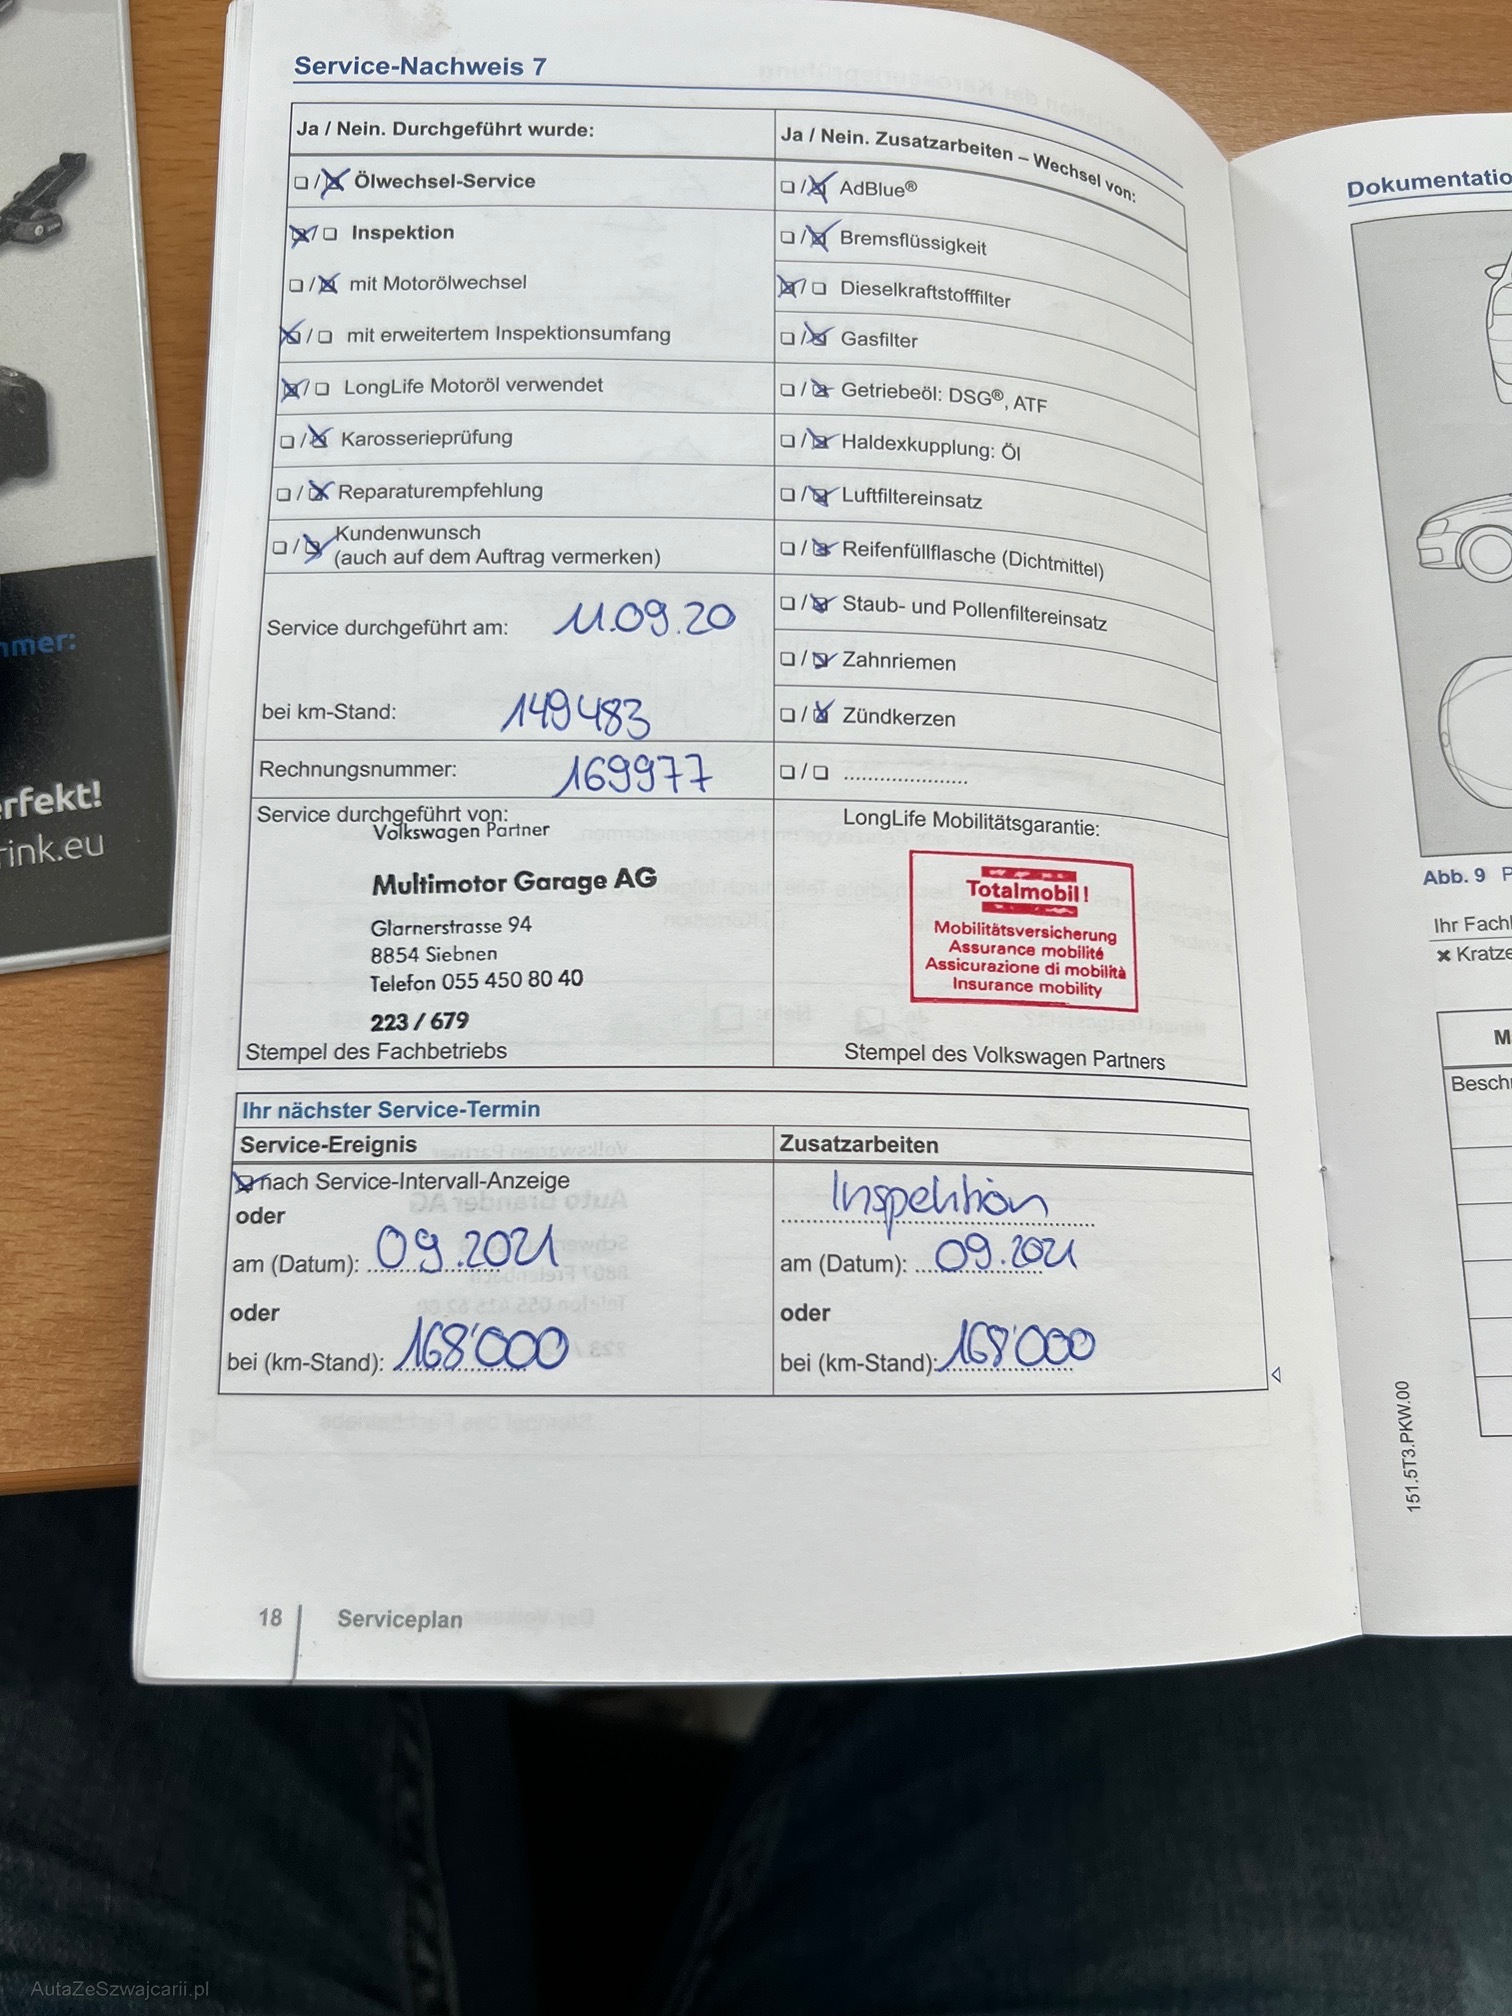 Service-Nachweis 7
Ja / Nein. Durchgeführt wurde:
Ja / Nein. Zusatzarbeiten – Wechsel von:
Ölwechsel-Service
Inspektion
mit Motorölwechsel
mit erweitertem Inspektionsumfang
LongLife Motoröl verwendet
Karosserieprüfung
Reparaturempfehlung
Kundenwunsch
(auch auf dem Auftrag vermerken)
Service durchgeführt am: 11.09.20
bei km-Stand: 149483
Rechnungsnummer: 169977
AdBlue®
Bremsflüssigkeit
Dieselkraftstofffilter
Gasfilter
Getriebeöl: DSG®, ATF
Haldexkupplung: Öl
Luftfiltereinsatz
Reifenfüllflasche (Dichtmittel)
Staub- und Pollenfiltereinsatz
Zahnriemen
Zündkerzen
Service durchgeführt von:
Volkswagen Partner
Multimotor Garage AG
Glarnerstrasse 94
8854 Siebnen
Telefon 055 450 80 40
223 / 679
Stempel des Fachbetriebs
LongLife Mobilitätsgarantie:
Totalmobil!
Mobilitätsversicherung
Assurance mobilité
Assicurazione di mobilità
Insurance mobility
Stempel des Volkswagen Partners
Ihr nächster Service-Termin
Service-Ereignis
nach Service-Intervall-Anzeige
oder
am (Datum): 09.2021
oder
bei (km-Stand): 168'000
Zusatzarbeiten
Inspektion
am (Datum): 09.2021
oder
bei (km-Stand): 168'000
18 Serviceplan
Dokumentatio
Abb. 9 P
Ihr Fach
Kratze
M
Besch
151.5T3.PKW.00
mmer:
rfekt!
rink.eu
AutaZeSzwajcarii.pl